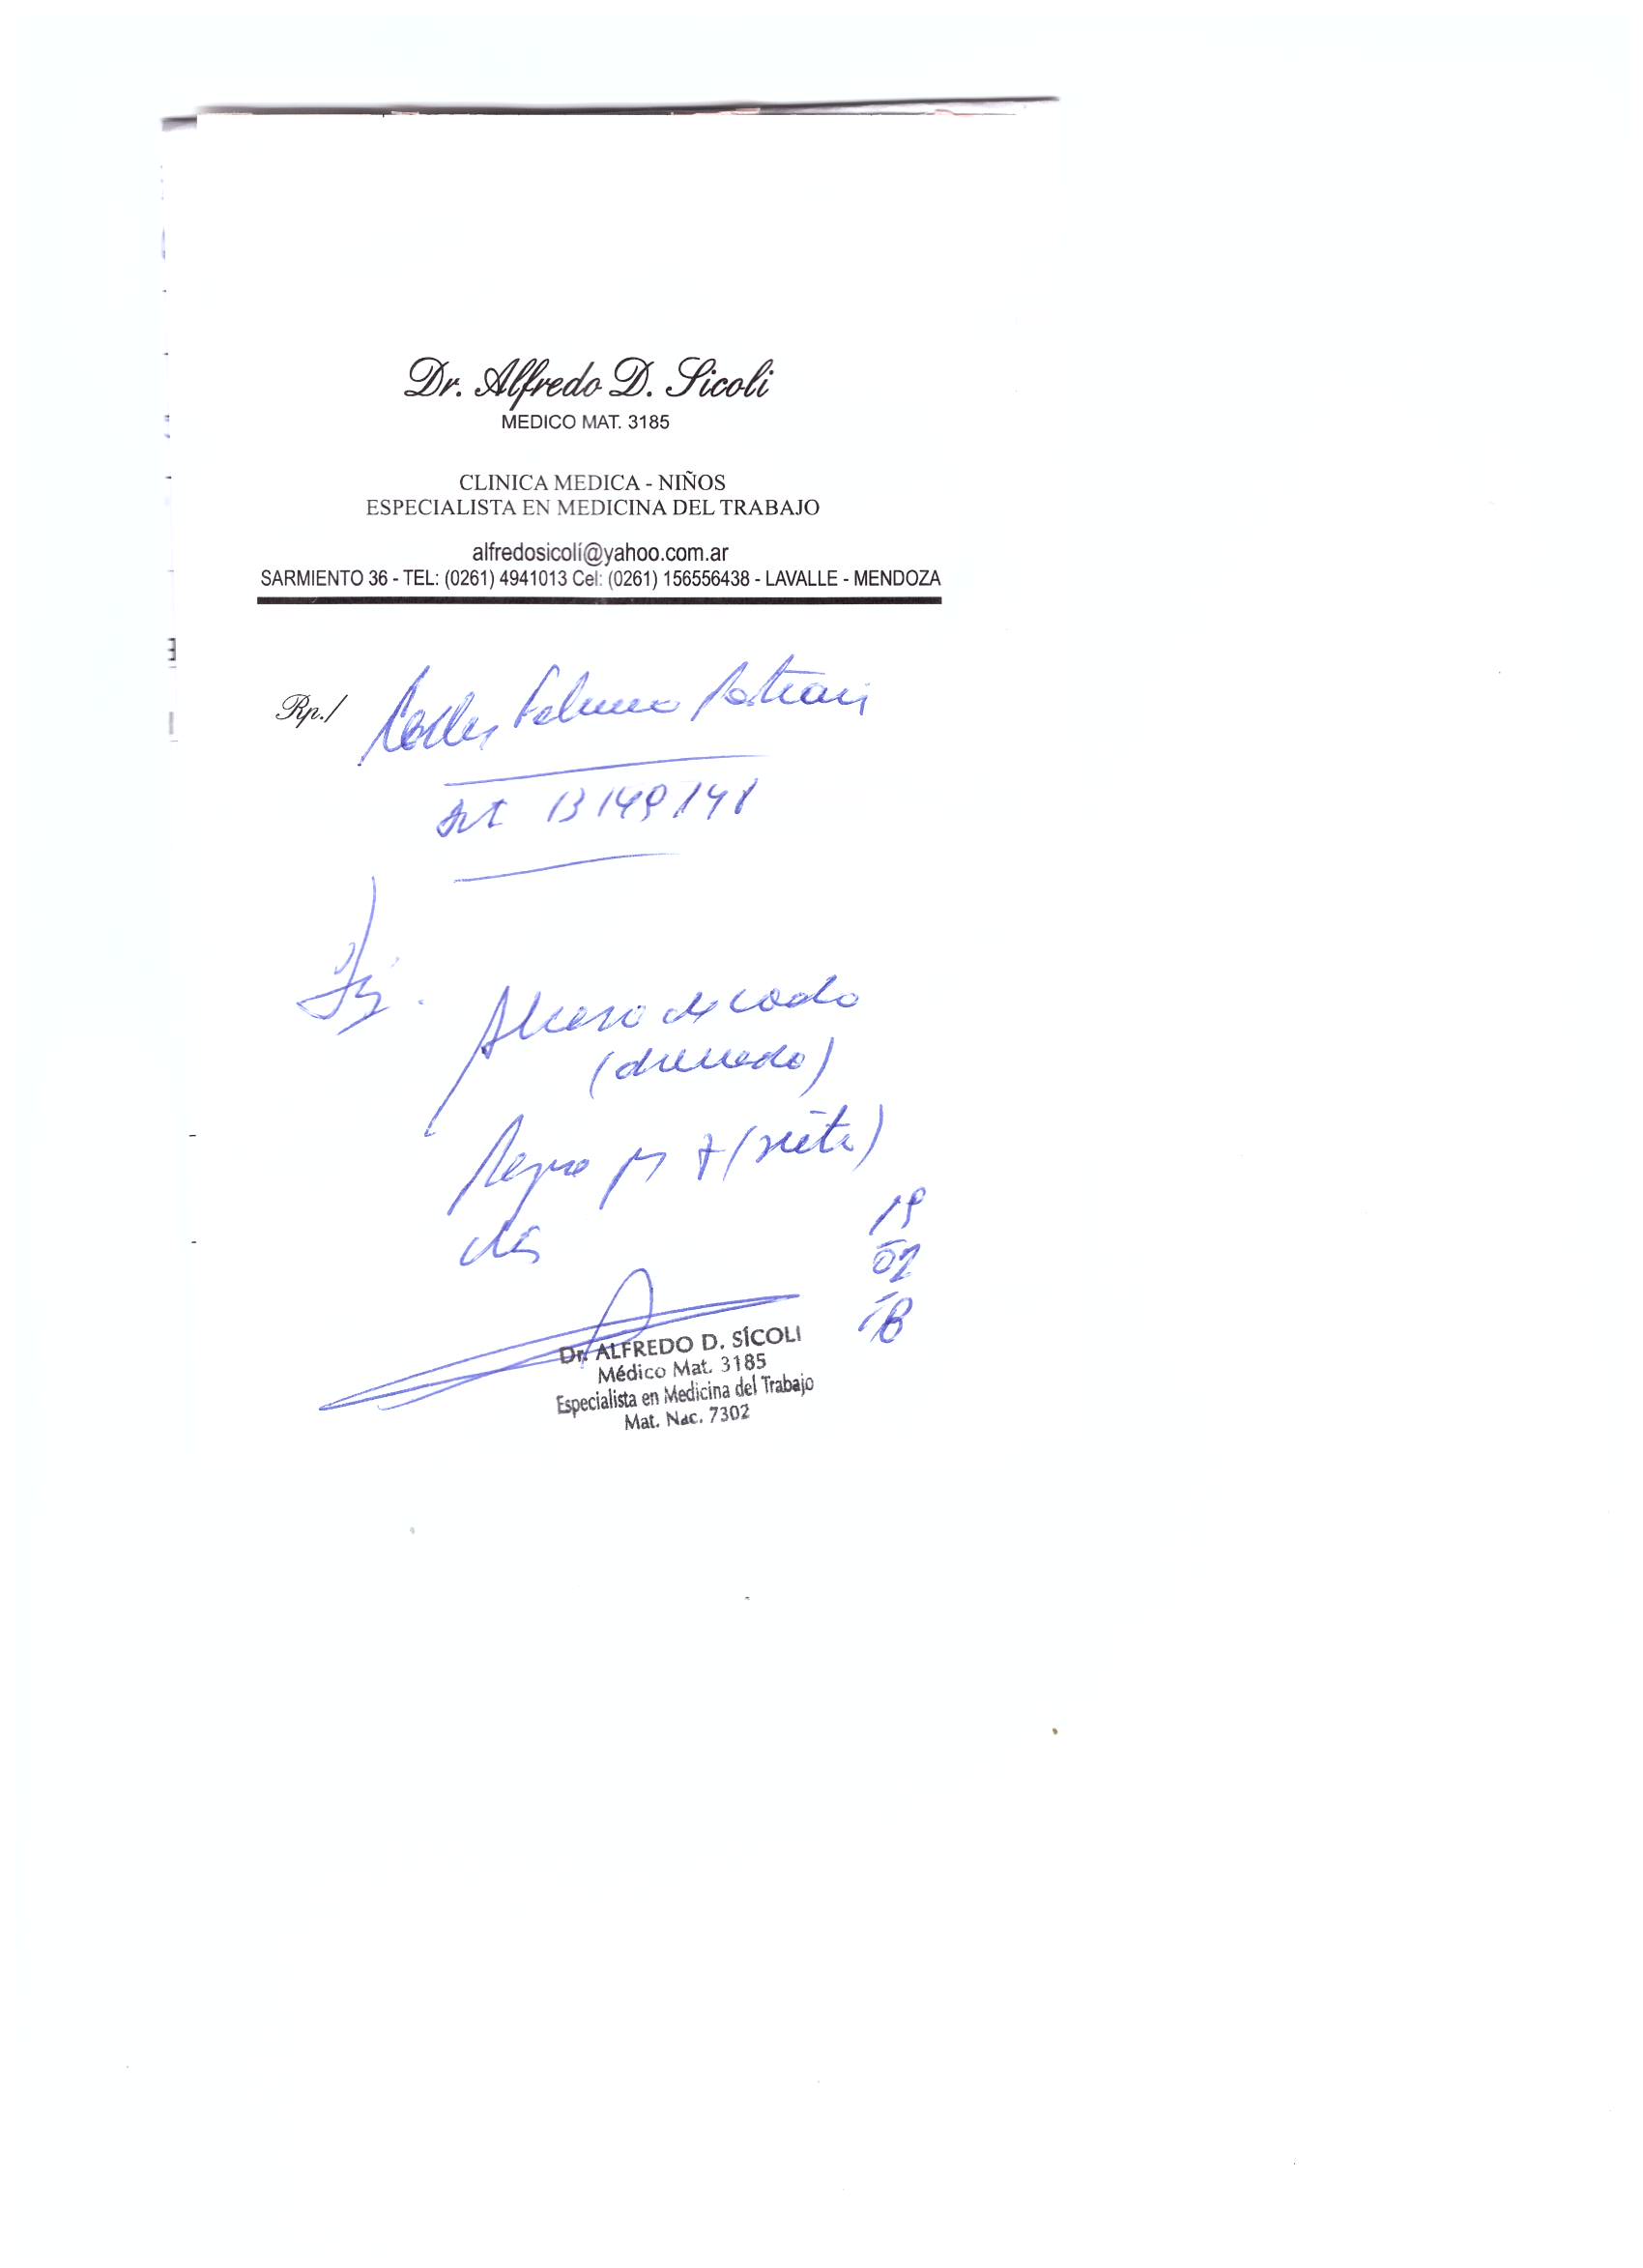 Dr. Alfredo D. Sicoli
MEDICO MAT. 3185
CLINICA MEDICA - NIÑOS
ESPECIALISTA EN MEDICINA DEL TRABAJO
alfredosicolí@yahoo.com.ar
SARMIENTO 36 - TEL: (0261) 4941013 Cel: (0261) 156556438 - LAVALLE - MENDOZA
Rp./
13149148
Absceso de codo
(drenado)
Reposo 7 (siete)
días
19
02
18
Dr. ALFREDO D. SÍCOLI
Médico Mat. 3185
Especialista en Medicina del Trabajo
Mat. Nac. 7302